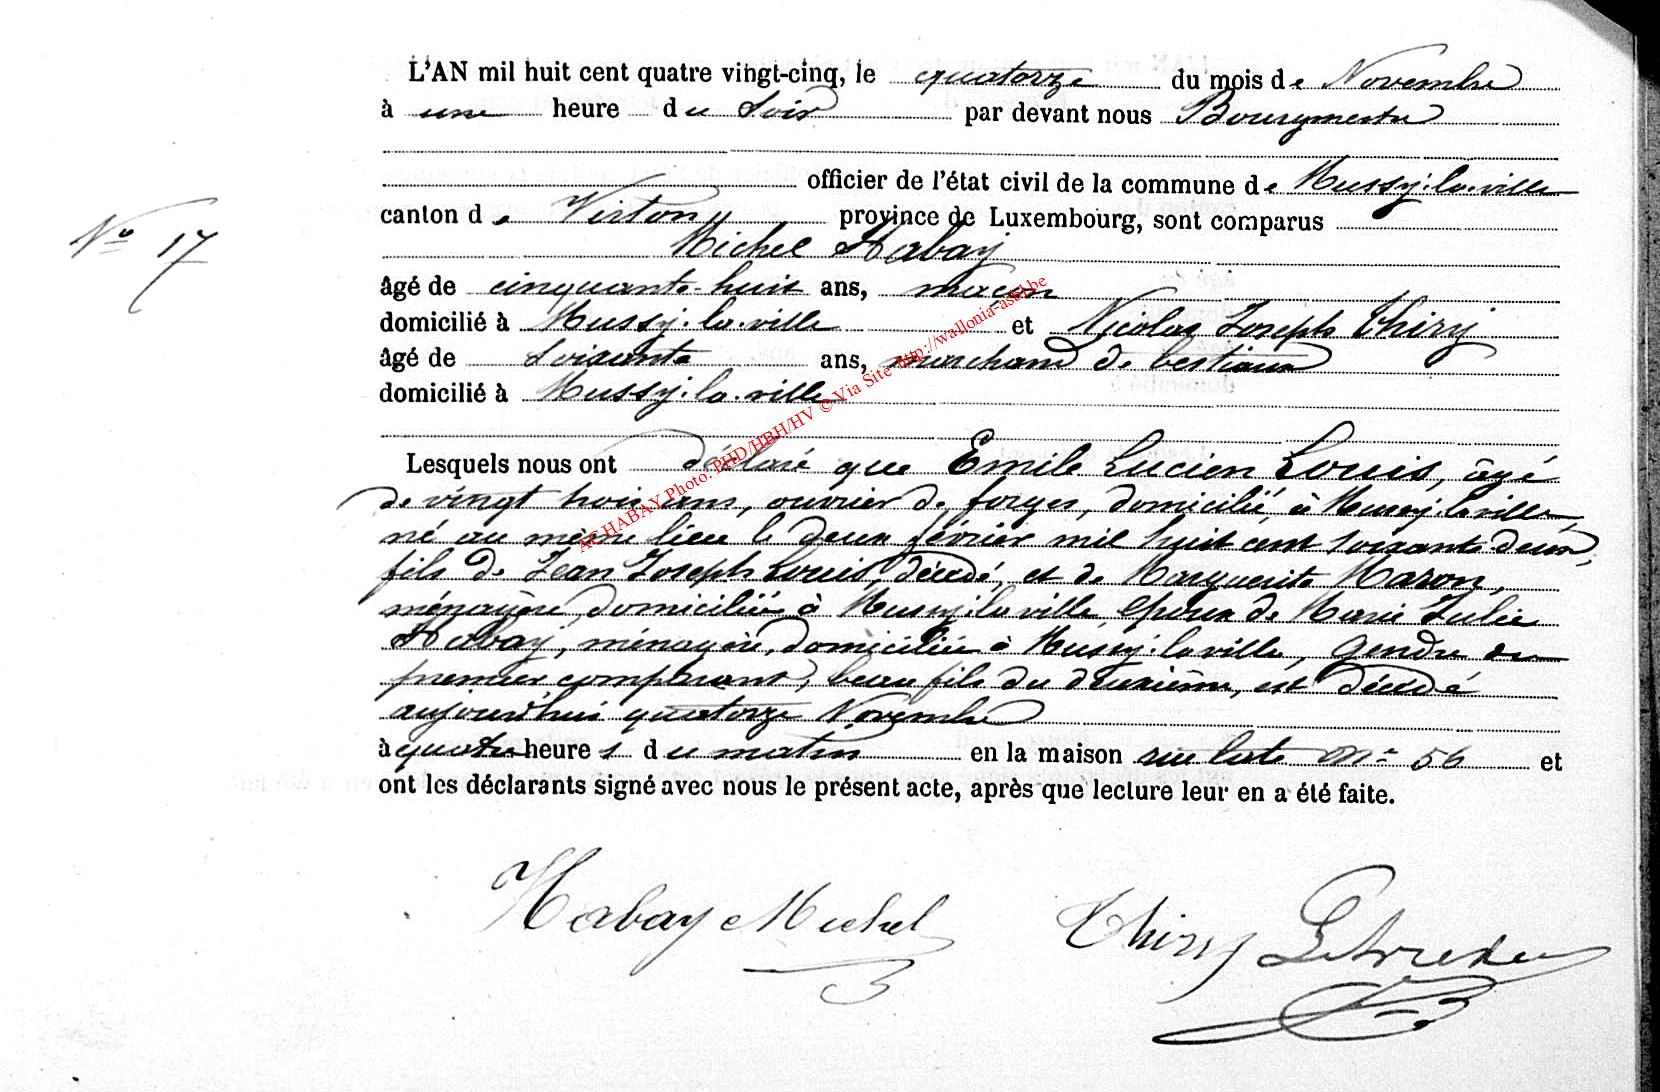 L'AN mil huit cent quatre vingt-cinq, le quatorze du mois de Novembre
à une heure du Soir par devant nous Bourgmestre
officier de l'état civil de la commune de Mussy-la-ville
canton de Virton province de Luxembourg, sont comparus
N° 17
Michel Habay
âgé de cinquante-huit ans, maçon
domicilié à Mussy-la-ville et Nicolas Joseph Thiry
âgé de Soixante ans, marchand de bestiaux
domicilié à Mussy-la-ville
Lesquels nous ont déclaré que Emile Lucien Louis, âgé
de vingt trois ans, ouvrier de forges, domicilié à Mussy-la-ville,
né au même lieu le deux février mil huit cent soixante deux,
fils de Jean Joseph Louis, décédé, et de Marguerite Maron,
ménagère, domiciliée à Mussy-la-ville, époux de Marie Julie
Habay, ménagère, domiciliée à Mussy-la-ville, gendre du
premier comparant, beau fils du deuxième, est décédé
aujourd'hui quatorze Novembre
à quatre heures du matin en la maison rue N° 56 et
ont les déclarants signé avec nous le présent acte, après que lecture leur en a été faite.
Habay Michel Thiry
ACHABAY Photo: PHD/HBH/HV © Via Site http://wallonia-asbl.be